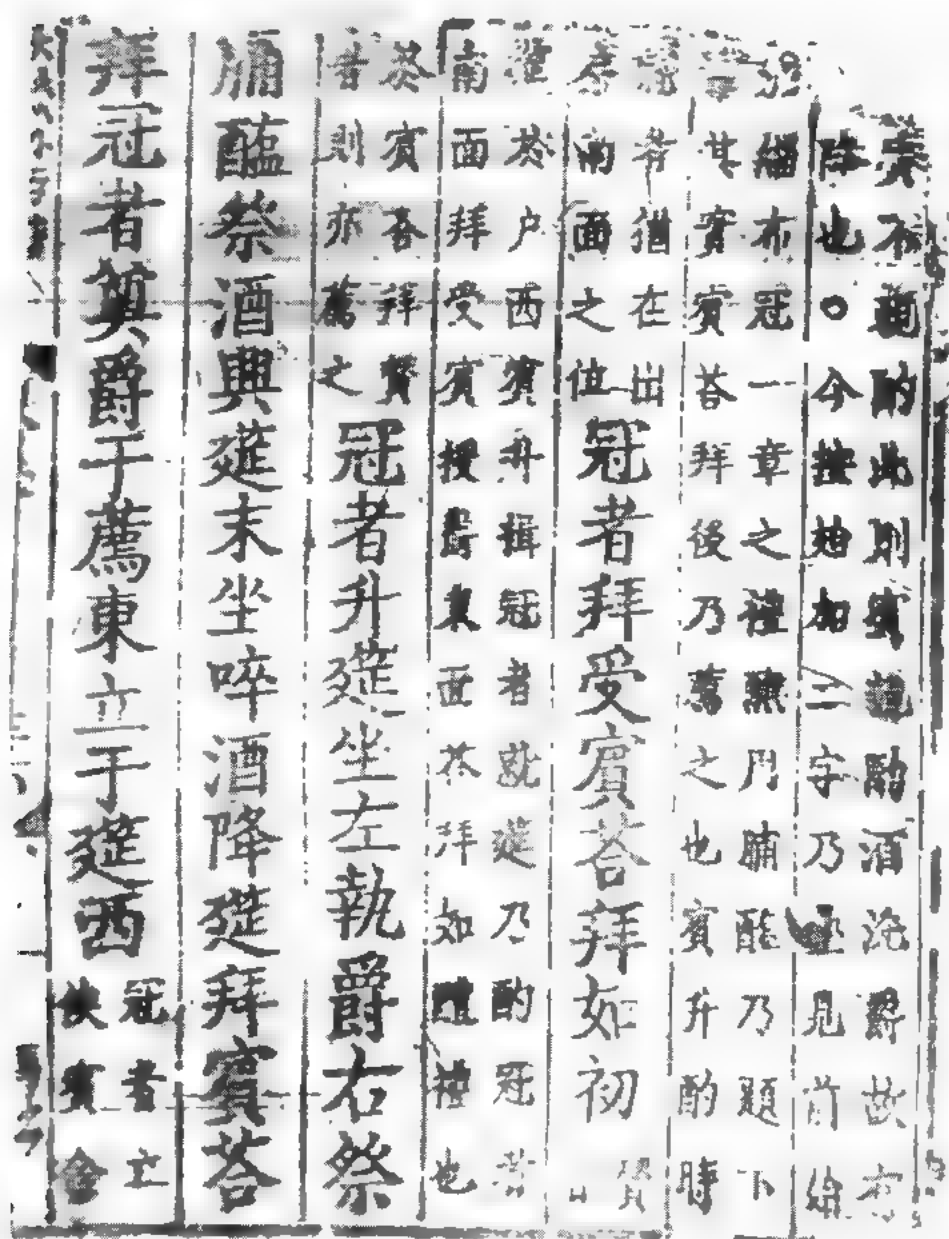 不親酌此則賓親酌酒洗爵故有
降也○今按始加二字乃疊見前始
緇布冠一章之禮醮用脯醢乃題下
其實賓荅拜後乃薦之也賓升酌時
者猶在出
房南面之位
冠者拜受賓荅拜如初
於户西賓升揖冠者就筵乃酌冠者
南面拜受賓授爵東面荅拜如醴禮也
於賓荅拜賛
者則亦薦之
冠者升筵坐左執爵右祭
脯醢祭酒興筵末坐啐酒降筵拜賓荅
拜冠者奠爵于薦東立于筵西
冠者立
俟賓命